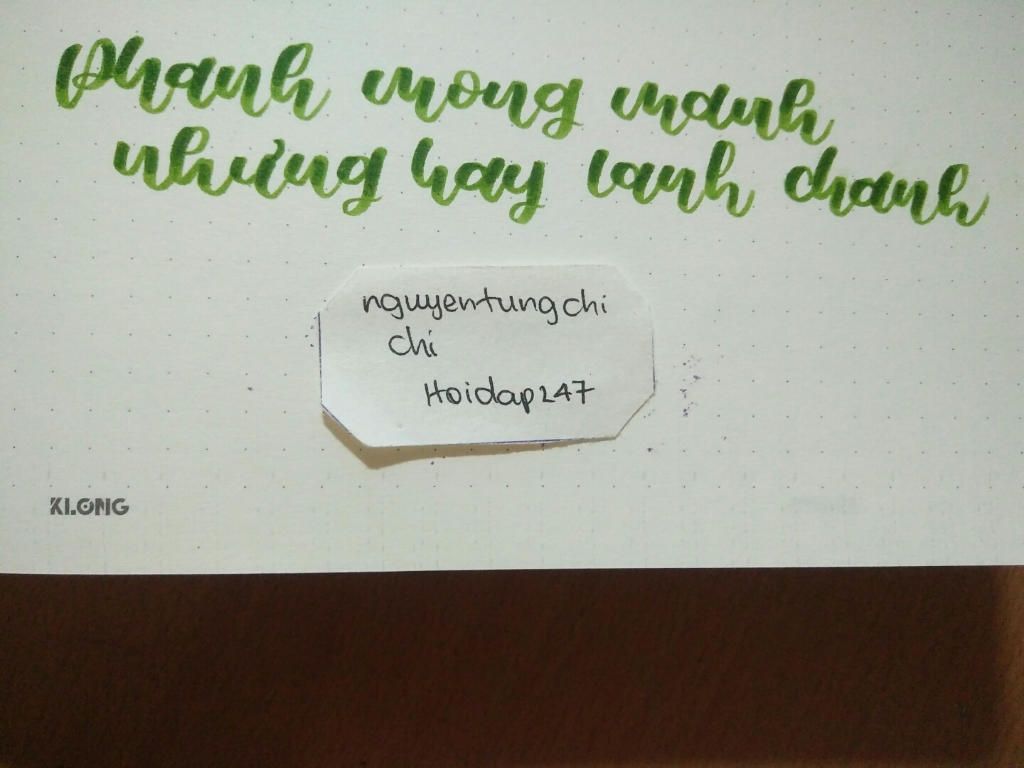 Phanh mong manh
nhưng hay lanh chanh
nguyentungchi
chi
Hoidap247
KLONG